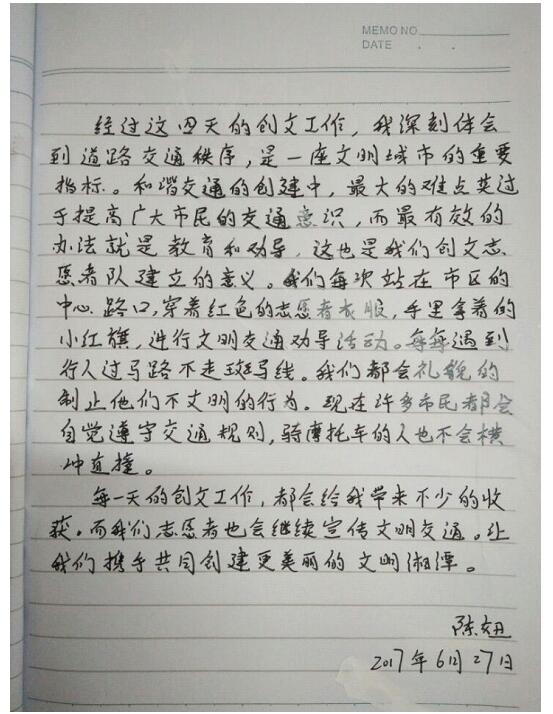 MEMO NO
DATE . .
经过这四天的创文工作，我深刻体会
到道路交通秩序，是一座文明城市的重要
指标。和谐交通的创建中，最大的难点莫过
于提高广大市民的交通意识，而最有效的
办法就是教育和劝导，这也是我们创文志
愿者队建立的意义。我们每次站在市区的
中心路口，穿着红色的志愿者衣服，手里拿着的
小红旗，进行文明交通劝导活动。每每遇到
行人过马路不走斑马线。我们都会礼貌的
制止他们不文明的行为。现在许多市民都会
自觉遵守交通规则，骑摩托车的人也不会横
冲直撞。
每一天的创文工作，都会给我带来不少的收
获。而我们志愿者也会继续宣传文明交通。让
我们携手共同创建更美丽的文明湘潭。
陈
2017年6月27日